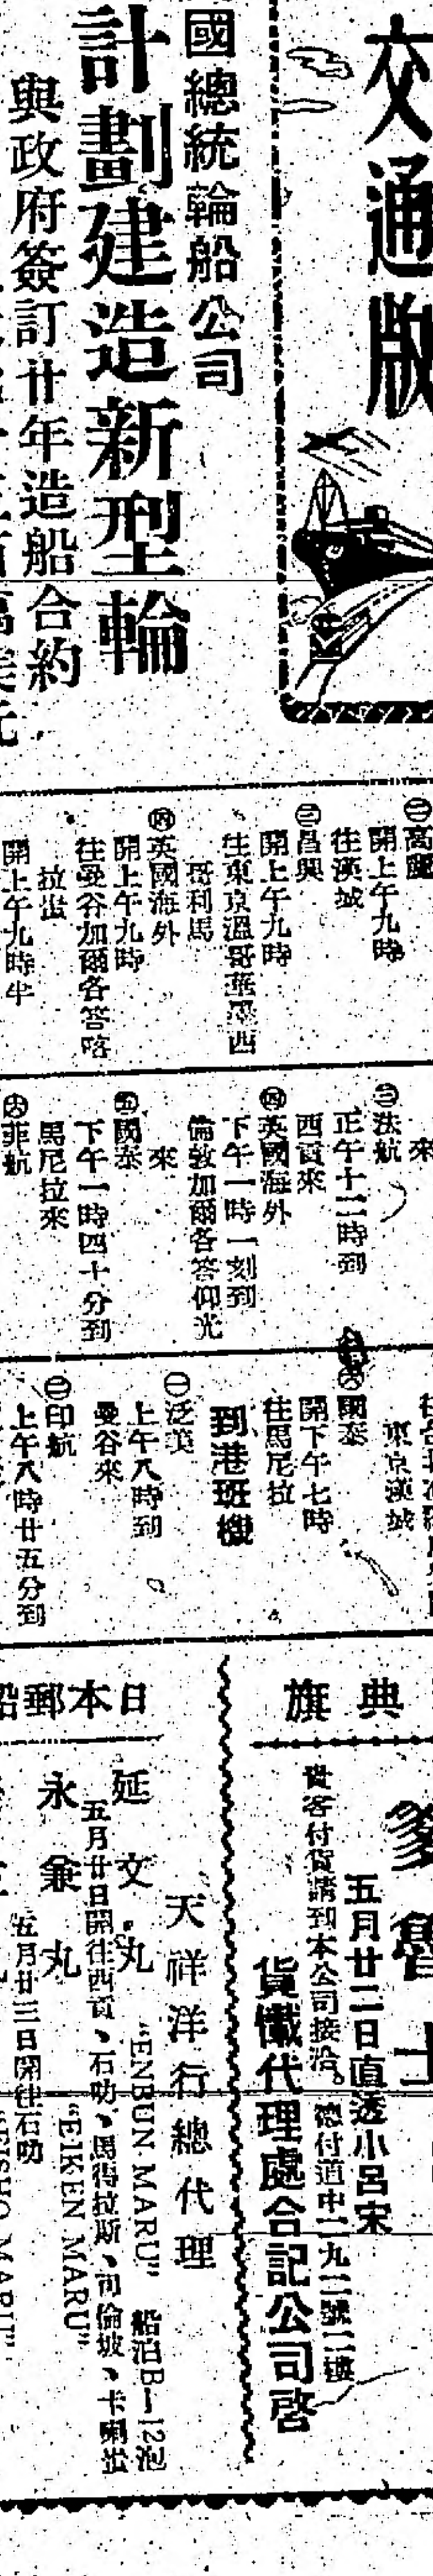 交通版
國總統輪船公司
計劃建造新型輪
與政府簽訂廿年造船合約
㊁高麗
開上午九時
往漢城
㊂昌興
開上午九時
往東京溫哥華墨西
哥利馬
㊃英國海外
開上午九時
往曼谷加爾各答喀
拉蚩
開上午九時半
來
㊂法航
正午十二時到
西貢來
㊃英國海外
下午一時一刻到
倫敦加爾各答仰光
來
㊄國泰
下午一時四十分到
馬尼拉來
㊅菲航
東京漢城
㊅國泰
開下午七時
往馬尼拉
到港班機
㊀泛美
上午八時到
曼谷來
㊁印航
上午八時廿五分到
典旗
五月廿二日直透小呂宋
貴客付貨請到本公司接洽。德付道中二九二號二樓
貨儎代理處合記公司啓
日本郵船
天祥洋行總代理
延文丸 "ENBUN MARU" 船泊B—12泡
五月廿日開往西貢、石叻、馬得拉斯、可倫坡、卡喇蚩
永兼丸 "EIKEN MARU"
五月廿三日開往石叻